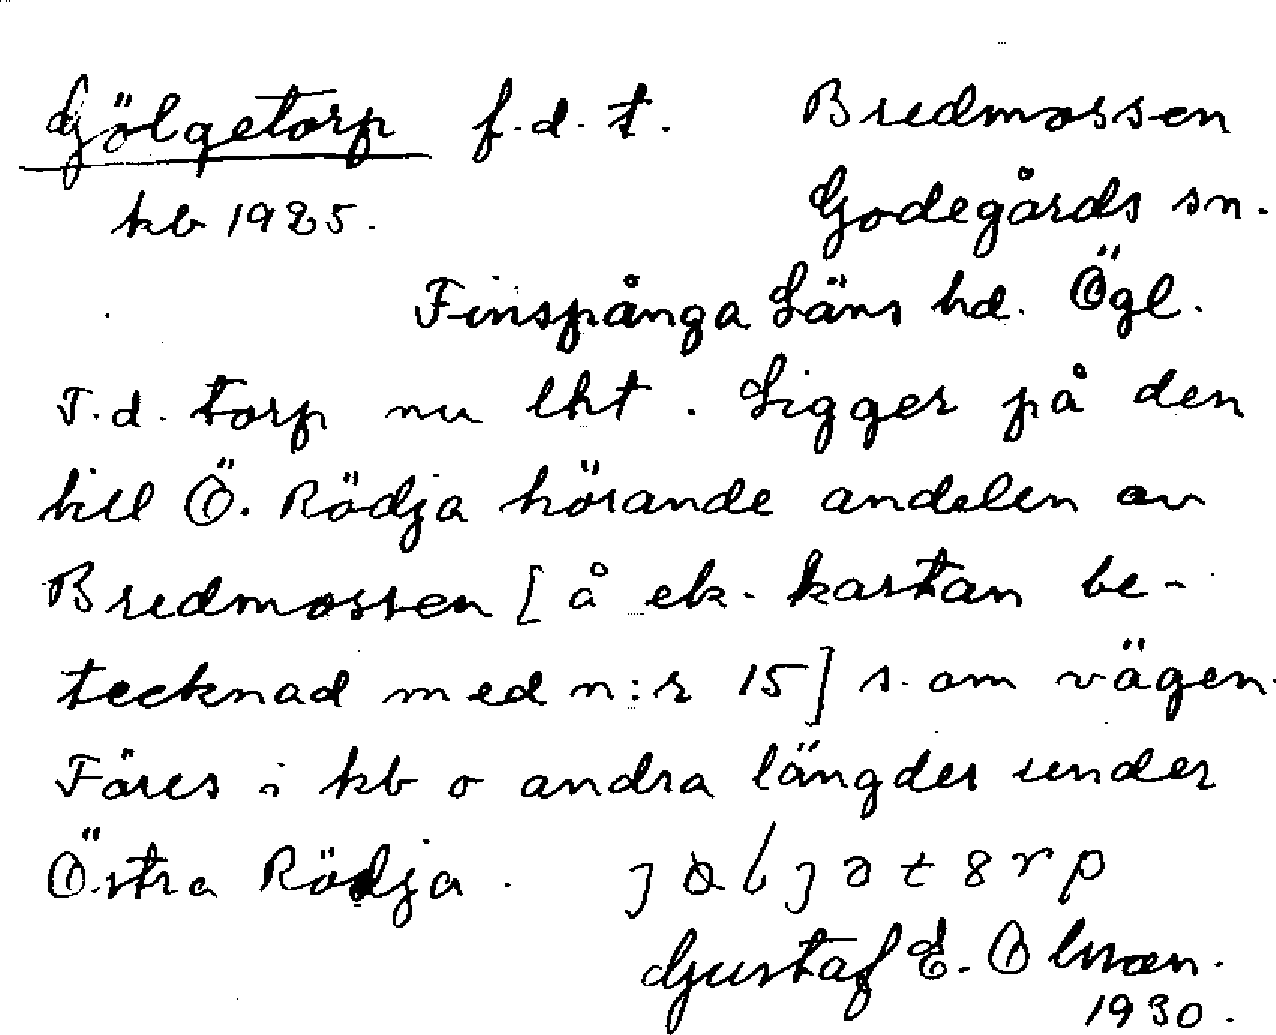 Gölgetorp f.d.t. Bredmossen
kb 1925. Godegårds sn.
Finspånga Läns hd. Ögl.
F.d. torp nu lht. Ligger på den
till Ö. Rödja hörande andelen av
Bredmossen [å ek. kartan be-
tecknad med n:r 15] s. om vägen.
Föres i kb o andra längder under
Östra Rödja.
Gustaf E. Olsson.
1930.